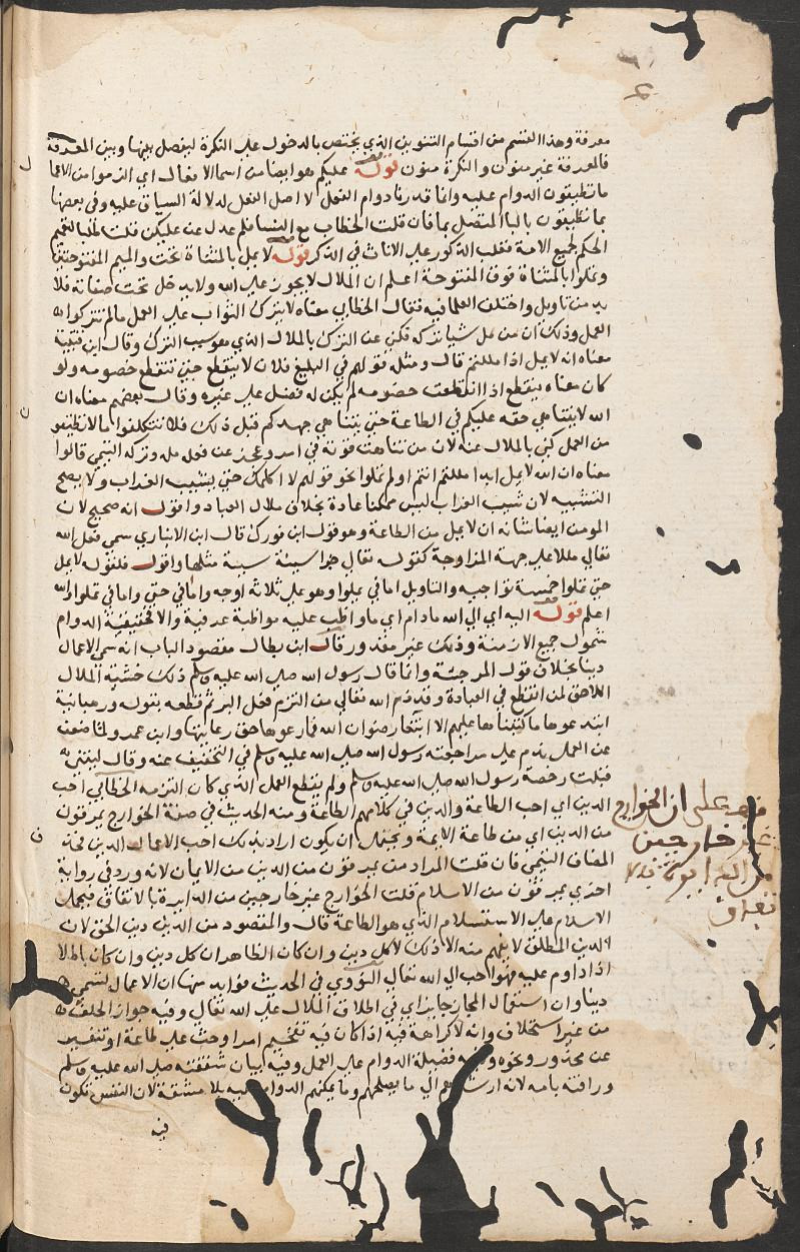 معرفة وهذا القسم من اقسام التنوين الذي يختص بالدخول علي النكرة ليفصل بينها وبين المعرفة
فالمعرفة غير منون والنكرة منون قوله عليكم هو ايضا من اسما الافعال اي الزموا من الاعما
ما تطيقون الدوام عليه وانما قدرنا دوام الفعل لا اصل الفعل لدلالة السياق عليه وفي بعضها
بما تطيقون بالبا المتصل بما فان قلت الخطاب مع النسا فلم عدل عن عليكن قلت لطلب تعميم
الحكم لجميع الامة فغلب الذكور علي الاناث في الذكر قوله لا يمل بالمثناة تحت والميم المفتوحتين
وتملوا بالمثناة فوق المفتوحة اعلم ان الملال لا يجوز علي الله ولا يدخل تحت صفاته فلا
بد من تاويل واختلف العلما فيه فقال الخطابي معناه لا يترك الثواب علي العمل ما لم تتركوا
العمل وذلك ان من مل شيا تركه فكني عن الترك بالملال الذي هو سبب الترك وقال ابن قتيبة
معناه انه لا يمل اذا مللتم قال ومثله قولهم في البليغ فلان لا ينقطع حتي تنقطع خصومه ولو
كان معناه ينقطع اذا انقطعت خصومه لم يكن له فضل علي غيره وقال بعضهم معناه ان
الله لا يتناهي حقه عليكم في الطاعة حتي يتناهي جهدكم قبل ذلك فلا تتكلفوا ما لا تطيقو
من العمل كني بالملال عنه لان من تناهت قوته في امر وعجز عن فعله مله وتركه التيمي قالوا
معناه ان الله لا يمل ابدا مللتم انتم او لم تملوا نحو قولهم لا اكلمك حتي يشيب الغراب ولا يصح
التشبيه لان شيب الغراب ليس ممكنا عادة بخلاف ملال العباد واقول انه صحيح لان
المومن ايضا شانه ان لا يمل من الطاعة وهو قول ابن فورك قال ابن الانباري سمي فعل الله
تعالي مللا علي جهة المزاوجة كقوله تعالي جزا سيئة سيئة مثلها واقول فلقوله لا يمل
حتي تملوا خمسة تواجيه والتاويل اما في يملوا وهو علي ثلاثة اوجه واما في حتي واما في تملوا والله
اعلم قوله اليه اي الي الله ما دام اي ما واظب عليه مواظبة عرفية والا فحقيقية الدوام
شمول جميع الازمنة وذلك غير مقدور قال ابن بطال مقصود الباب انه سمي الاعمال
دينا بخلاف قول المرجئة وانما قال رسول الله صلي الله عليه وسلم ذلك خشية الملال
اللاحق لمن انقطع في العبادة وقد ذم الله تعالي من التزم فعل البر ثم قطعه بقوله ورهبانية
ابتدعوها ما كتبناها عليهم الا ابتغا رضوان الله فما رعوها حق رعايتها وابن عمر ولما ضعف
عن العمل ندم علي مراجعته رسول الله صلي الله عليه وسلم في التخفيف عنه وقال ليتني
قبلت رخصة رسول الله صلي الله عليه وسلم ولم يقطع العمل الذي كان التزمه الخطابي احب
الدين اي احب الطاعة والدين في كلامهم الطاعة ومنه الحديث في صفة الخوارج يمرقون
من الدين اي من طاعة الايمة ويحتمل ان يكون اراد بذلك احب الاعمال الدين
المضاف التيمي فان قلت المراد من يمرقون من الدين من الايمان لانه ورد في رواية
اخري يمرقون من الاسلام قلت الخوارج غير خارجين من الدايرة بالاتفاق فيحمل
الاسلام علي الاستسلام الذي هو الطاعة قال والمقصود من الدين دين الحق لان
الدين المطلق لا يفهم منه الا ذلك لا كل دين وان كان الظاهر ان كل دين وان كان باطلا
اذا داوم عليه فهو احب الي الله تعالي النووي في الحديث فوايد منها ان الاعمال تسمي
دينا وان استعمال المجاز جايز اي في اطلاق الملال علي الله تعالي وفيه جواز الحلف
من غير استحلاف وانه لا كراهة فيه اذا كان فيه تفخيم امر او حث علي طاعة او تنفير
عن محذور ونحوه وفيه فضيلة الدوام علي العمل وفيه بيان شفقته صلي الله عليه وسلم
ورافته بامه لانه ارشدهم الي ما يصلحهم وما يمكنهم الدوام عليه بلا مشقة لان النفس تكون
فيه
علي ان الخوارج
خارجين